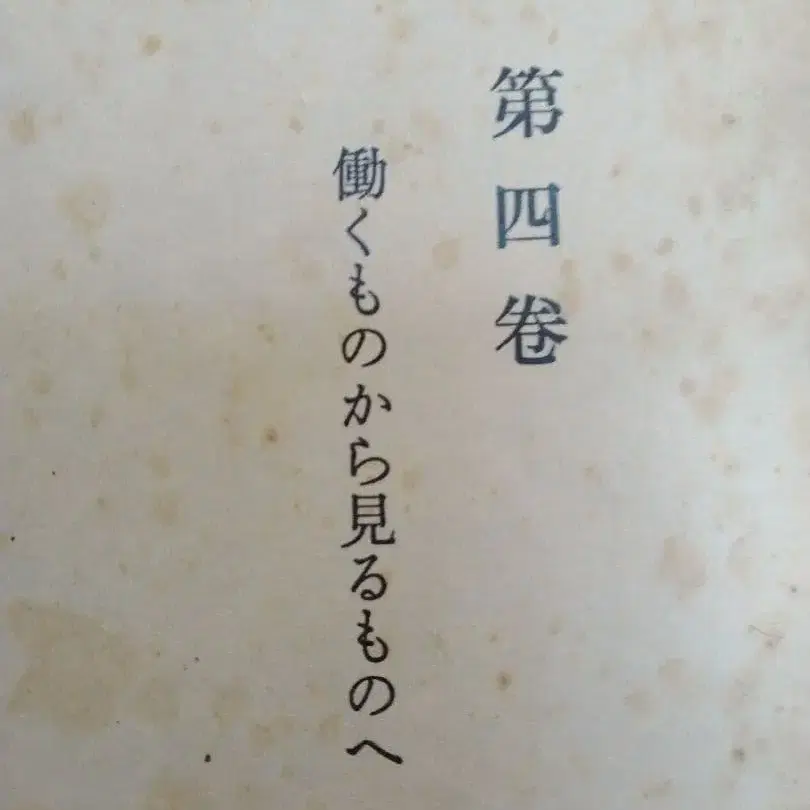 第四巻
働くものから見るものへ